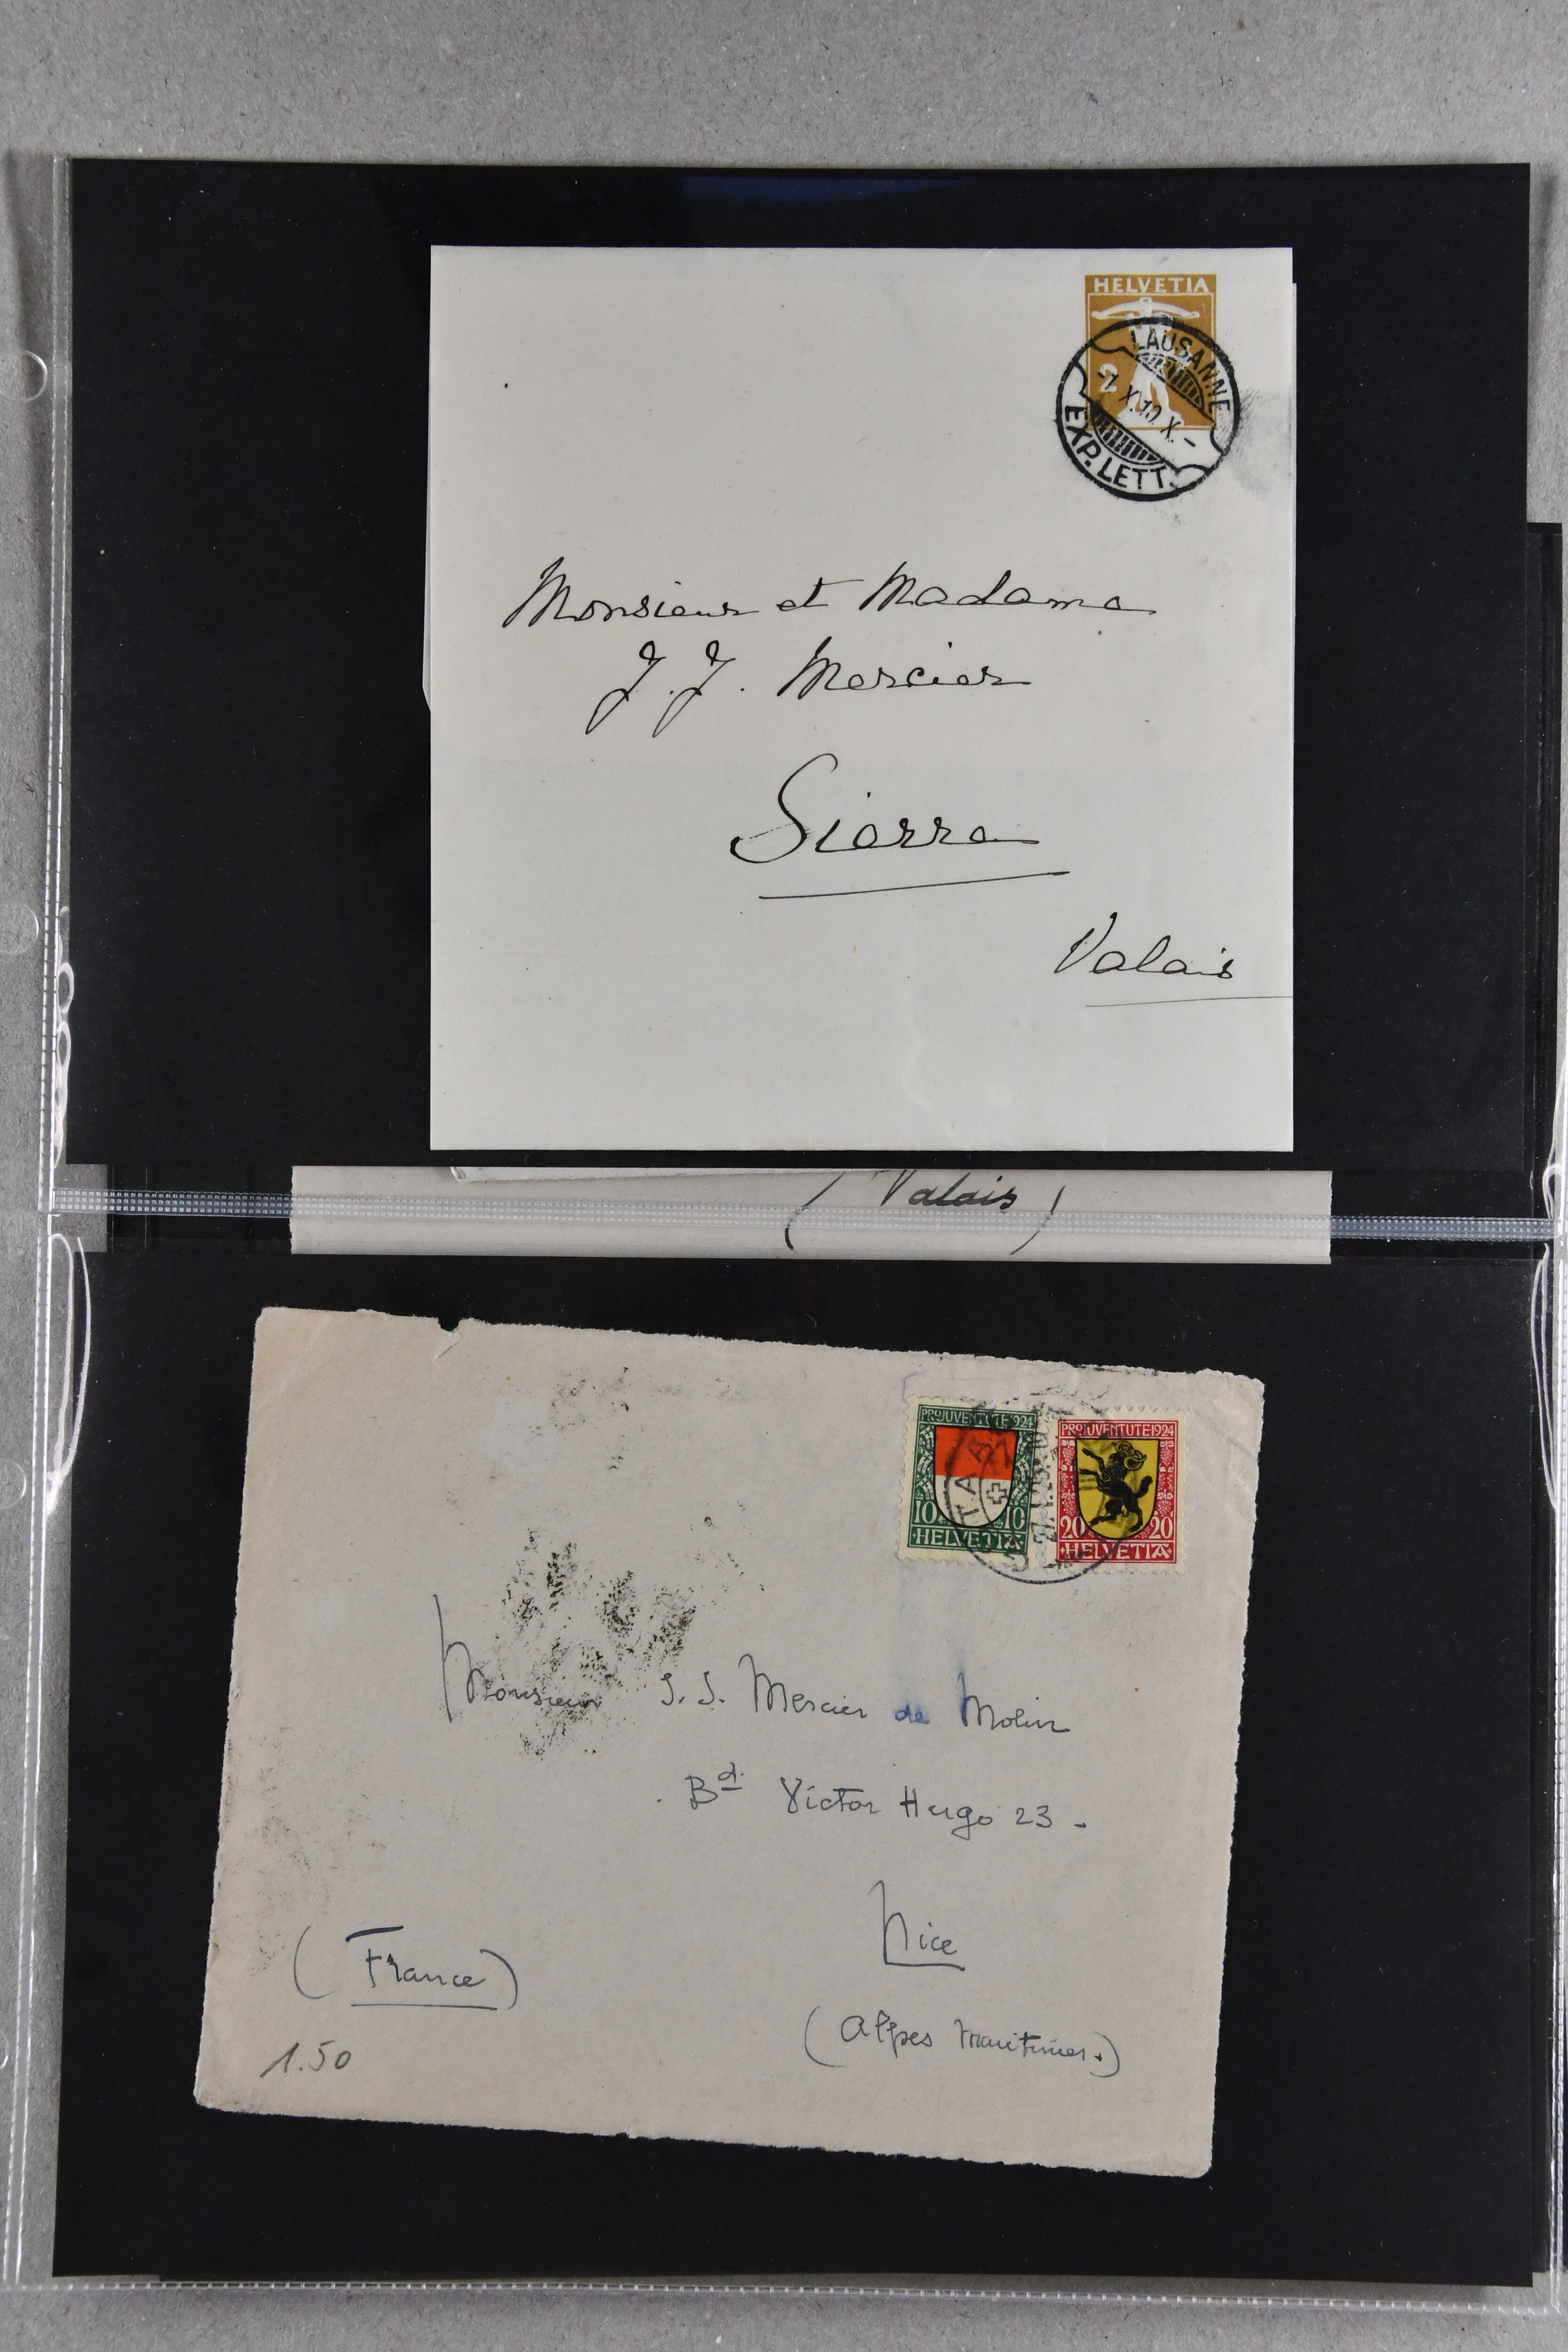 HELVETIA
2
LAUSANNE
EXP. LETT.
Monsieur et Madame
J. J. Mercier
Sierre
Valais
(Valais)
PRO JUVENTUTE 1924
10 10
HELVETIA
PRO JUVENTUTE 1924
20 20
HELVETIA
Monsieur J. J. Mercier de Molin
Bd. Victor Hugo 23.
Nice
(France)
(Alpes Maritimes.)
1.50